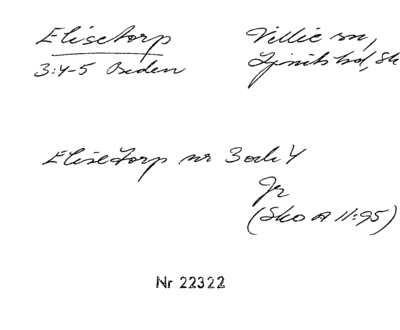 Elisetorp
Villie sn,
3:4-5 Buden
Ljunits hd, Sk
Elisetorp nr 3 och 4
Jr
(Sko A 11:95)
Nr 22322